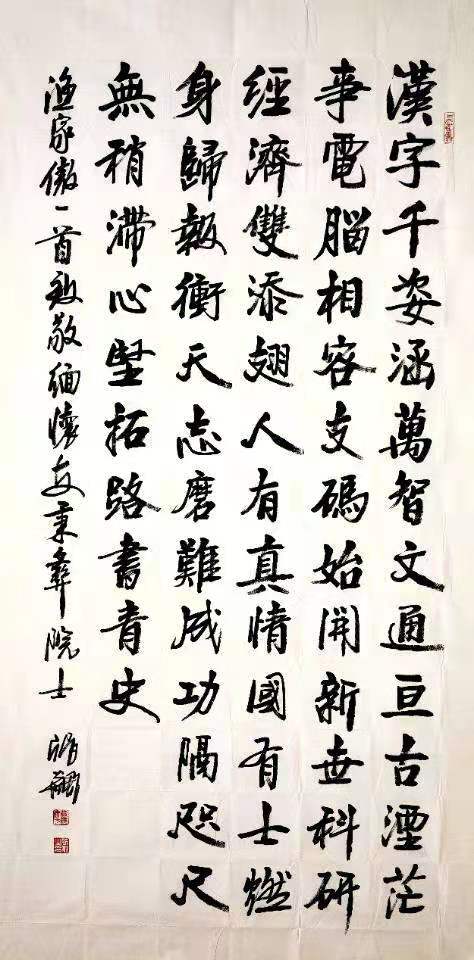 漢字千姿涵萬智文通亘古湮茫
事電腦相容支碼始開新世科研
經濟雙添翅人有真情國有士燃
身歸報衝天志磨難成功隔咫尺
無稍滯心堅拓路書青史
渔家傲一首致敬緬懷支秉彝院士